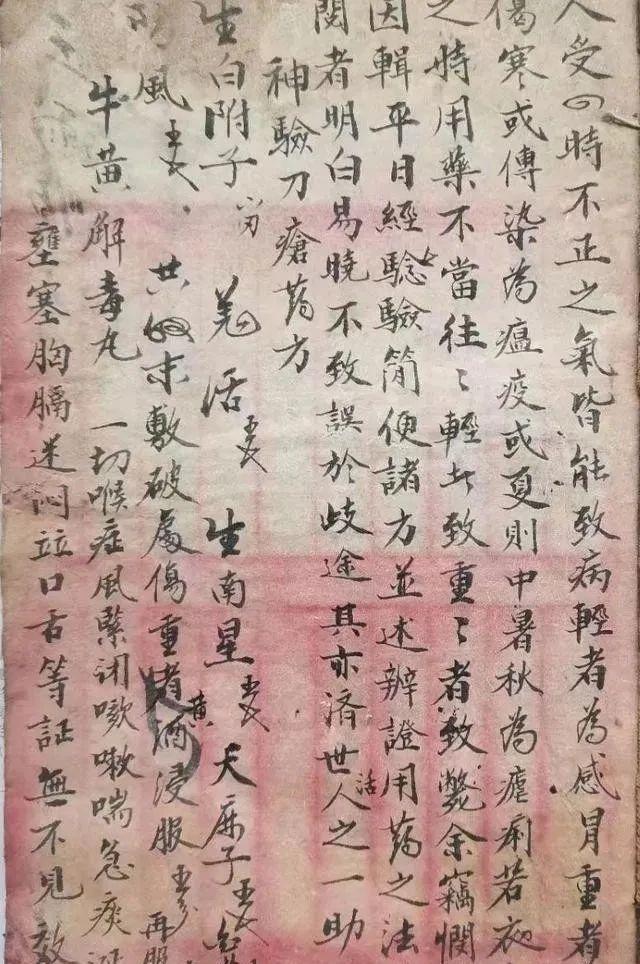 人受四時不正之氣皆能致病輕者為感冒重者
傷寒或傳染為瘟疫或夏則中暑秋為瘧痢若夜
之時用藥不當往〻輕者致重〻者致斃余竊憫
因輯平日經驗簡便諸方並述辨證用药之法
閱者明白易曉不致誤於歧途其亦済世活人之一助
神驗刀瘡药方
生白附子 羌活 生南星 天麻子
風 共 末敷破處傷重者黃酒浸服 再服
牛黃解毒丸 一切喉症風緊闭咳嗽喘急痰涎
壅塞胸膈迷闷並口舌等証無不見效